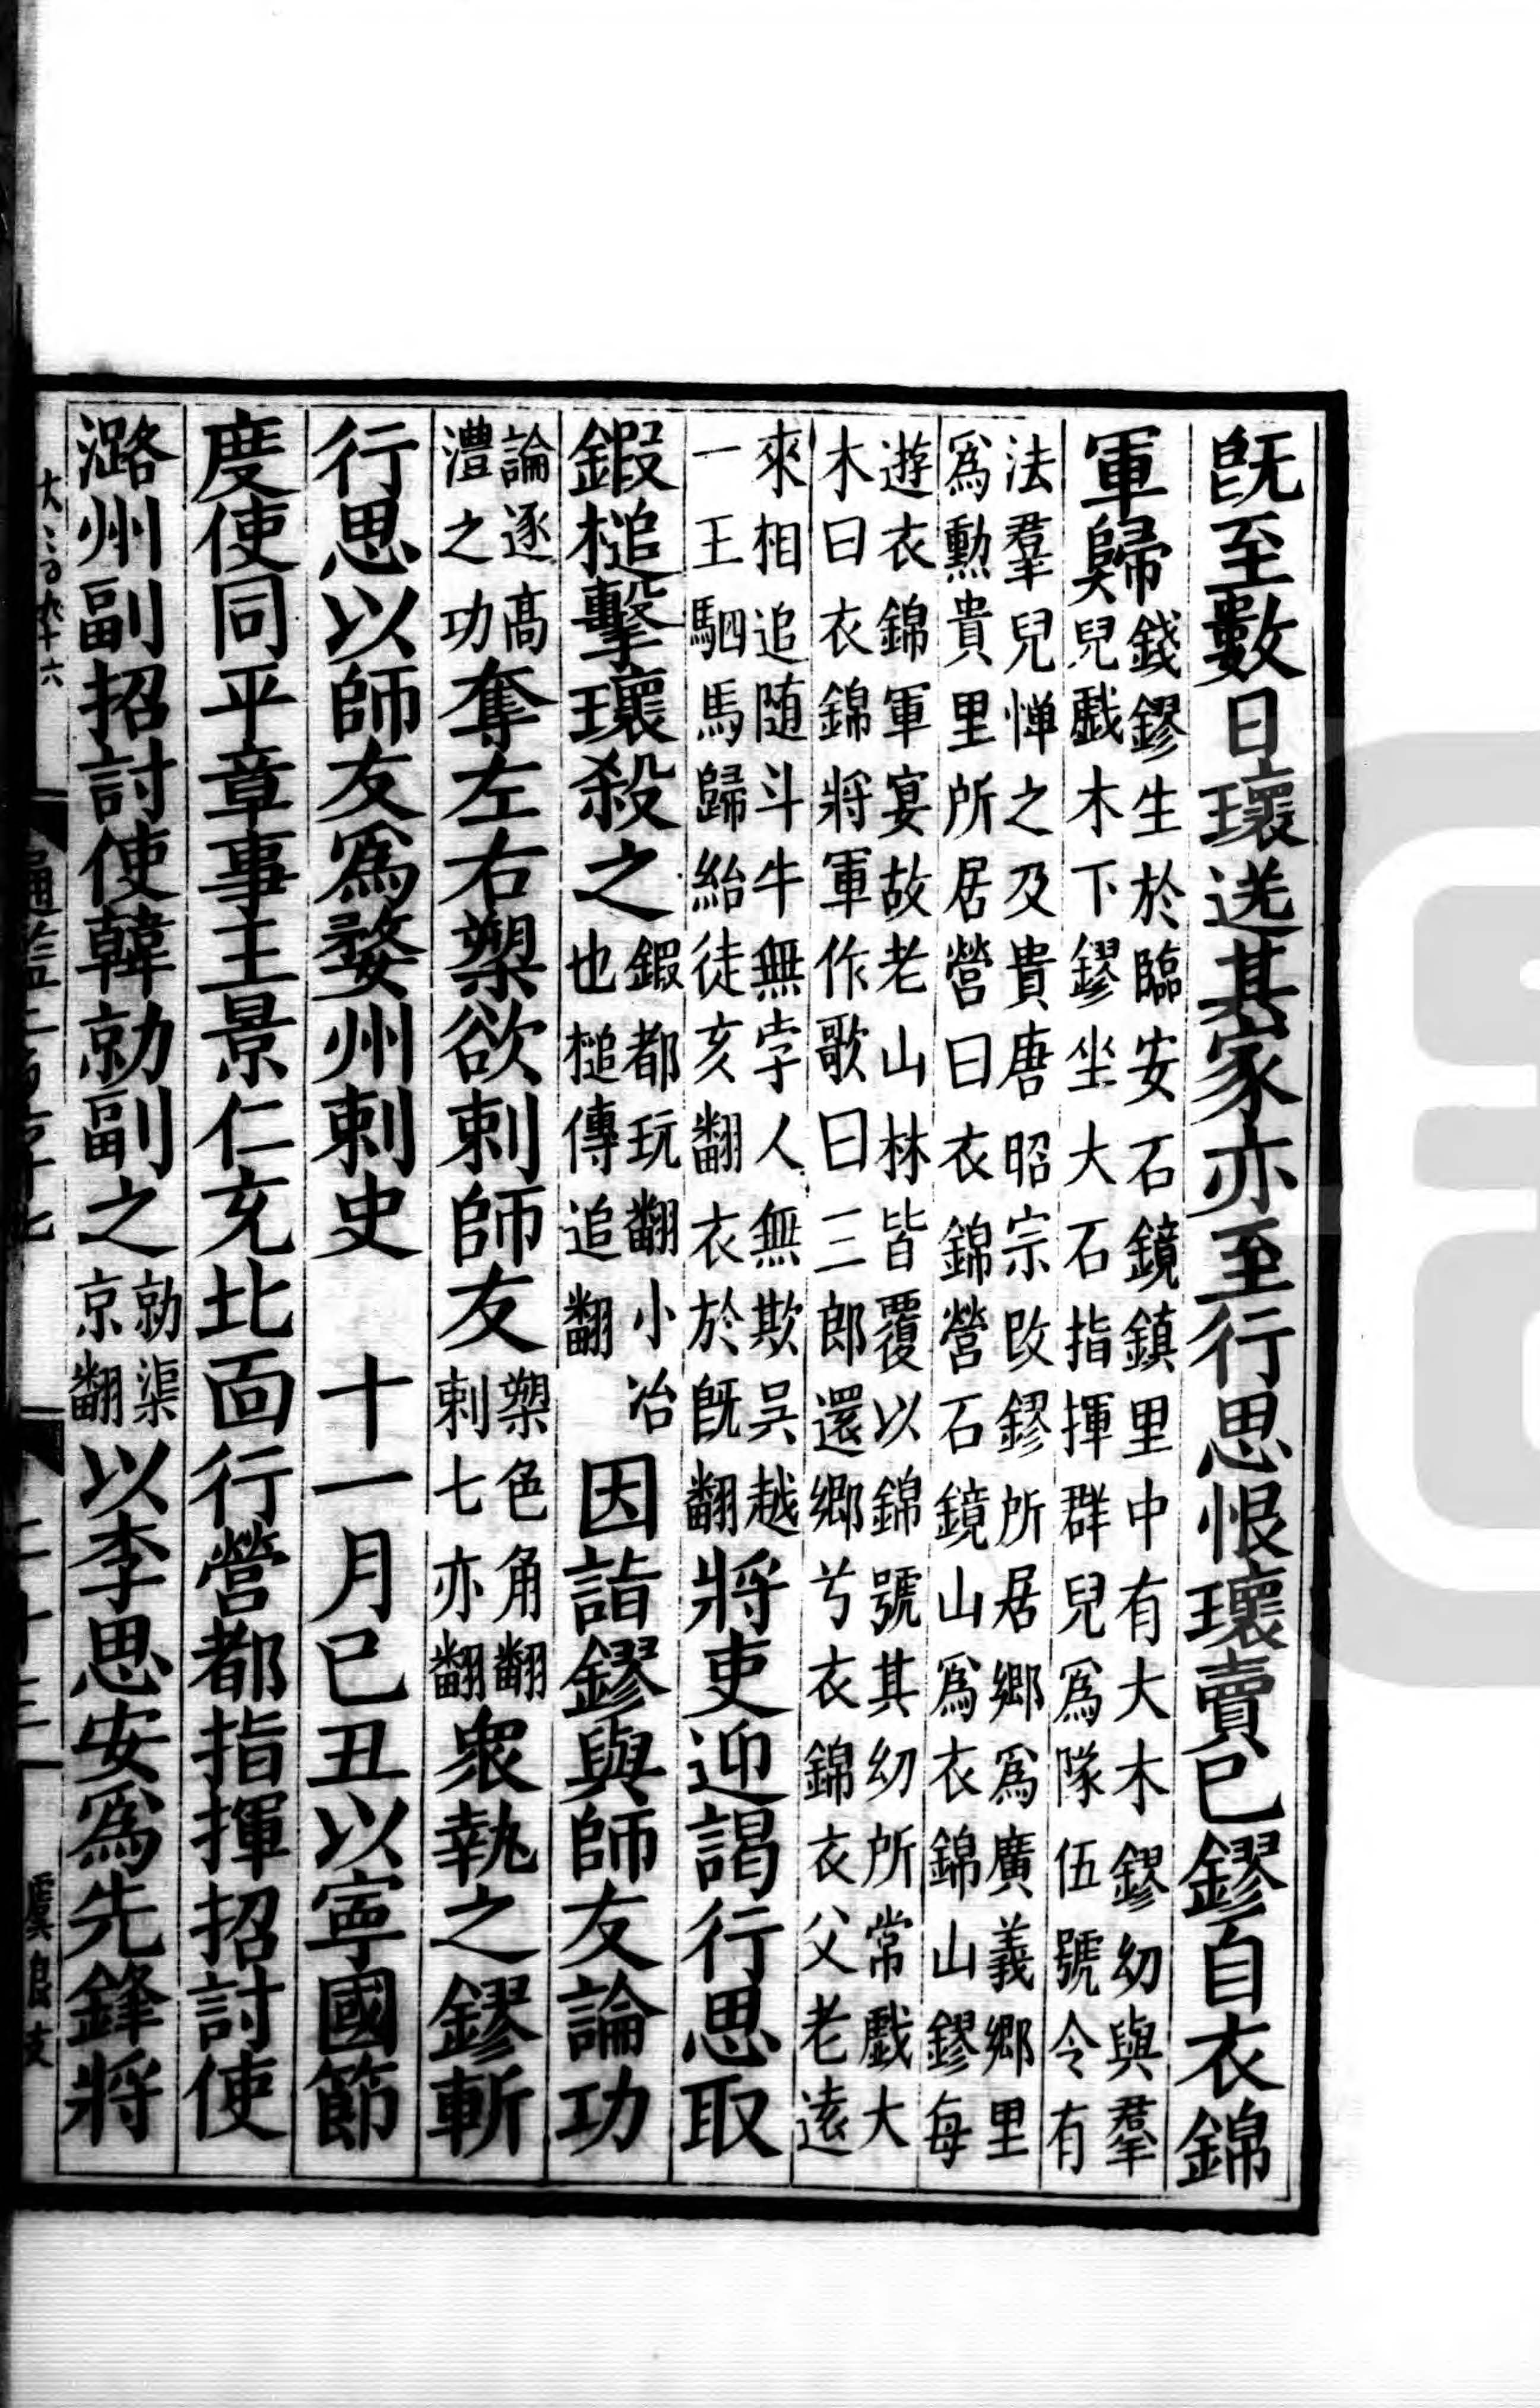 旣至數日瓌送其家亦至行思恨瓌賣已鏐自衣錦
軍歸錢鏐生於臨安石鏡鎮里中有大木鏐幼與羣
兒戲木下鏐坐大石指揮群兒爲隊伍號令有
法羣兒憚之及貴唐昭宗改鏐所居鄉爲廣義鄉里
爲勲貴里所居營曰衣錦營石鏡山爲衣錦山鏐每
遊衣錦軍宴故老山林皆覆以錦號其幼所常戲大
木曰衣錦將軍作歌曰三郎還鄉兮衣錦衣父老逺
來相追随斗牛無孛人無欺吳越
一王駟馬歸紿徒亥翻衣於旣翻將吏迎謁行思取
鍜槌擊瓌殺之鍜都玩翻小冶
也槌傳追翻因詣鏐與師友論功
論逐高
澧之功奪左右槊欲刺師友槊色角翻
刺七亦翻衆執之鏐斬
行思以師友爲婺州刺史 十一月巳丑以寧國節
度使同平章事王景仁充北面行營都指揮招討使
潞州副招討使韓勍副之勍渠
京翻以李思安爲先鋒將